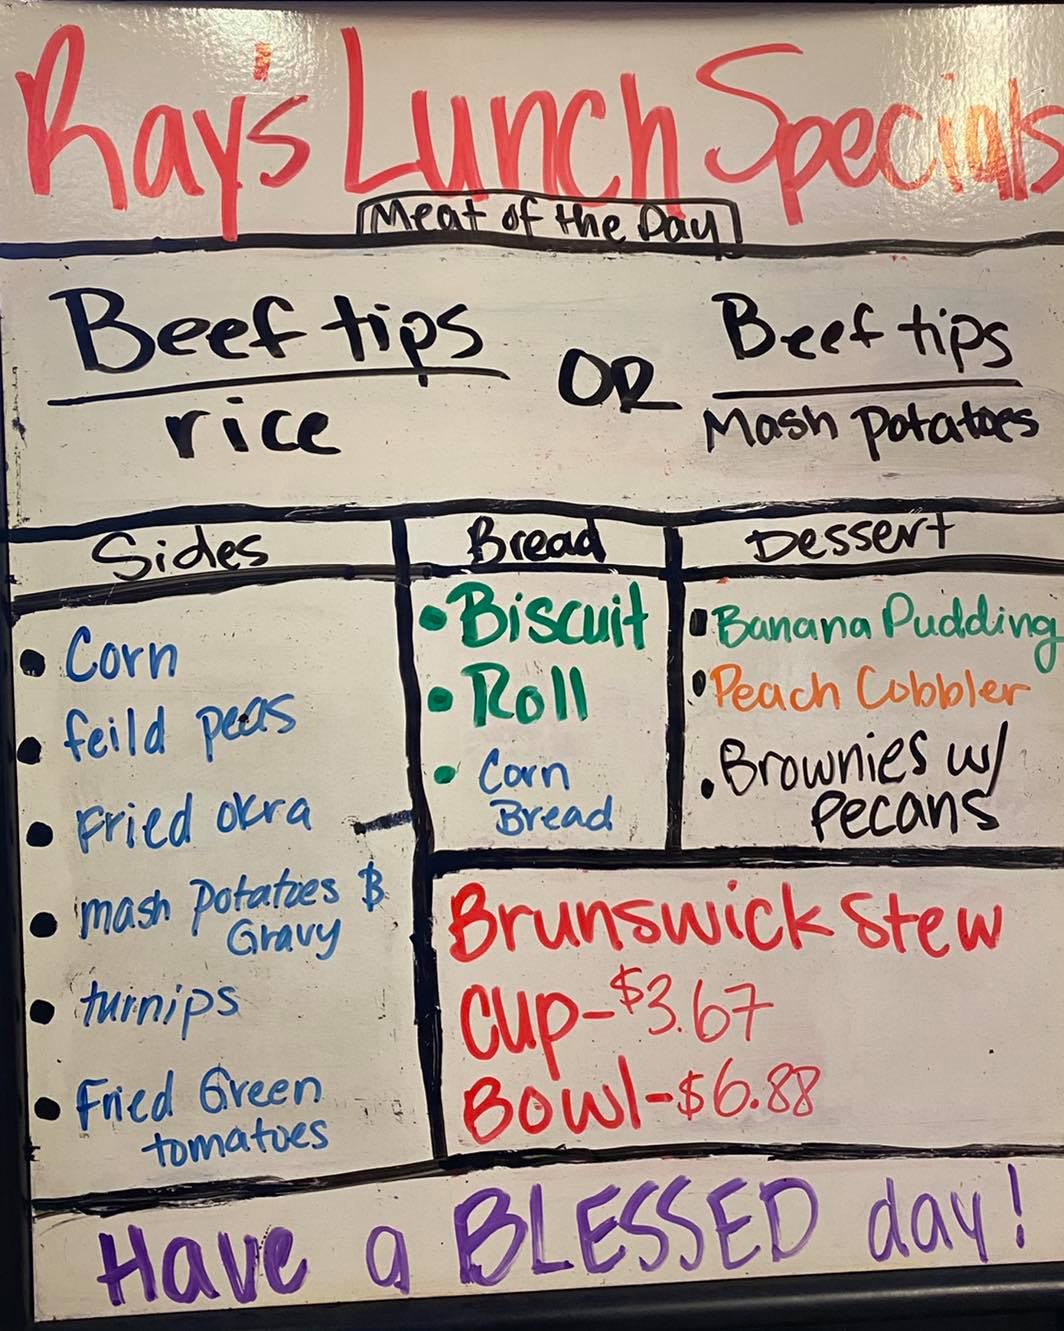 Ray's Lunch Specials
Meat of the Day
Beef tips
rice
OR
Beef tips
Mash Potatoes
Sides
Corn
feild peas
Fried okra
mash Potatoes &
Gravy
turnips
Fried Green
tomatoes
Bread
Biscuit
Roll
Corn
Bread
Dessert
Banana Pudding
Peach Cobbler
Brownies w/
Pecans
Brunswick Stew
Cup-$3.67
Bowl-$6.88
Have a BLESSED day!